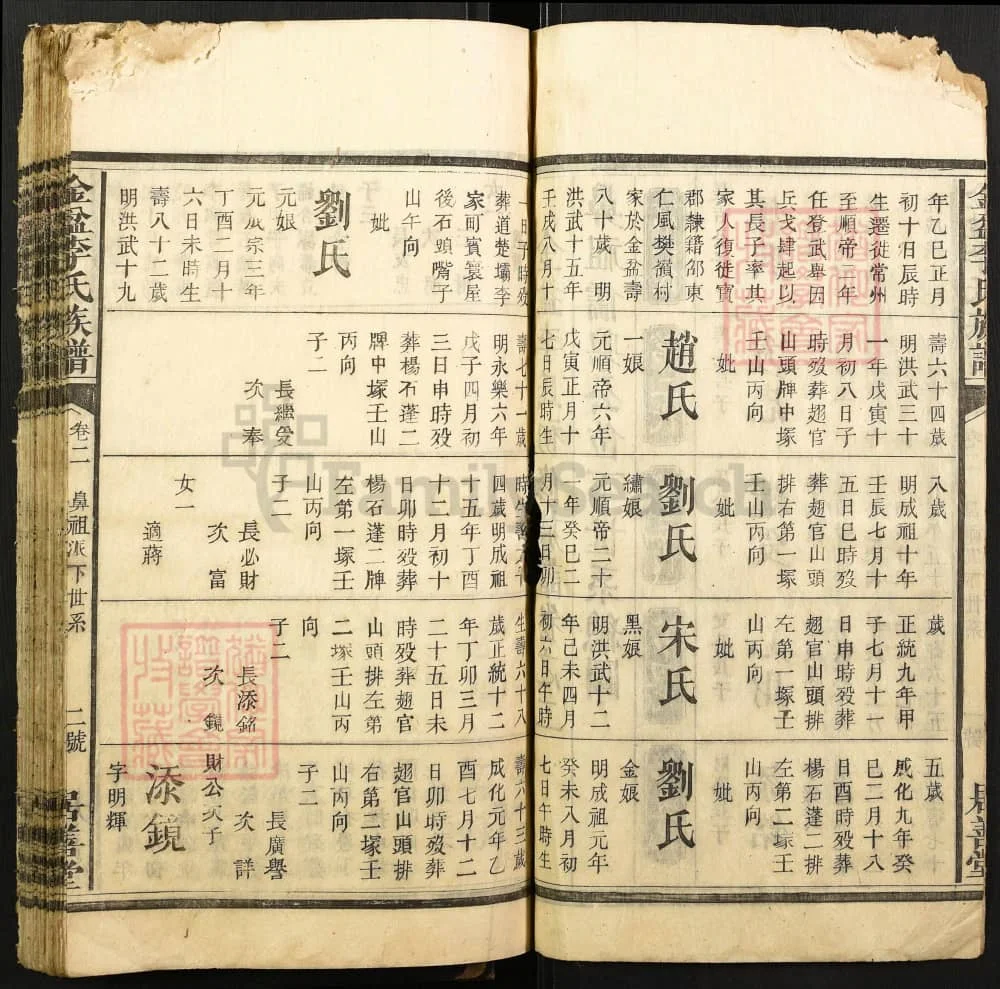 金盆李氏族譜
居善堂
年乙巳正月
初十日辰時
生遷徙常州
至順帝一年
任登武舉因
兵戈肆起以
其長子率其
家人復徙寶
郡隸籍邵東
仁風樊嶺村
家於金盆壽
八十歲 明
洪武十五年
壬戌八月十
一日子時歿
葬道楚壩李
家町賓寰屋
後石頭嘴子
山午向
妣
劉氏
元娘
元成宗三年
丁酉二月十
六日未時生
壽八十二歲
明洪武十九
壽六十四歲
明洪武三十
一年戊寅十
月初八日子
時歿葬翅官
山頭牌中塚
壬山丙向
妣
趙氏
一娘
元順帝六年
戊寅正月十
七日辰時生
壽七十一歲
明永樂六年
戊子四月初
三日申時歿
葬楊石蓬二
牌中塚壬山
丙向
子二
長繼受
次 奉
八歲
明成祖十年
壬辰七月十
五日巳時歿
葬翅官山頭
排右第一塚
壬山丙向
妣
劉氏
繡娘
元順帝二十
一年癸巳二
月十三日卯
四歲明成祖
十五年丁酉
十二月初十
日卯時歿葬
楊石蓬二牌
左第一塚壬
山丙向
子二
長必財
次 富
女一
適蔣
歲
正統九年甲
子七月十一
日申時歿葬
翅官山頭排
左第一塚壬
山丙向
妣
宋氏
黑娘
明洪武十二
年己未四月
初六日午時
生壽六十八
歲正統十二
年丁卯三月
二十五日未
時歿葬翅官
山頭排左第
二塚壬山丙
向
子二
長添銘
次 鏡
五歲
成化九年癸
巳二月十八
日酉時歿葬
楊石蓬二排
左第二塚壬
山丙向
妣
劉氏
金娘
明成祖元年
癸未八月初
七日午時生
壽六十三歲
成化元年乙
酉七月十二
日卯時歿葬
翅官山頭排
右第二塚壬
山丙向
子二
長廣譽
次 詳
財公次子
添鏡
字明輝
金盆李氏族譜
卷二
鼻祖派下世系
二號
居善堂
FamilySearch